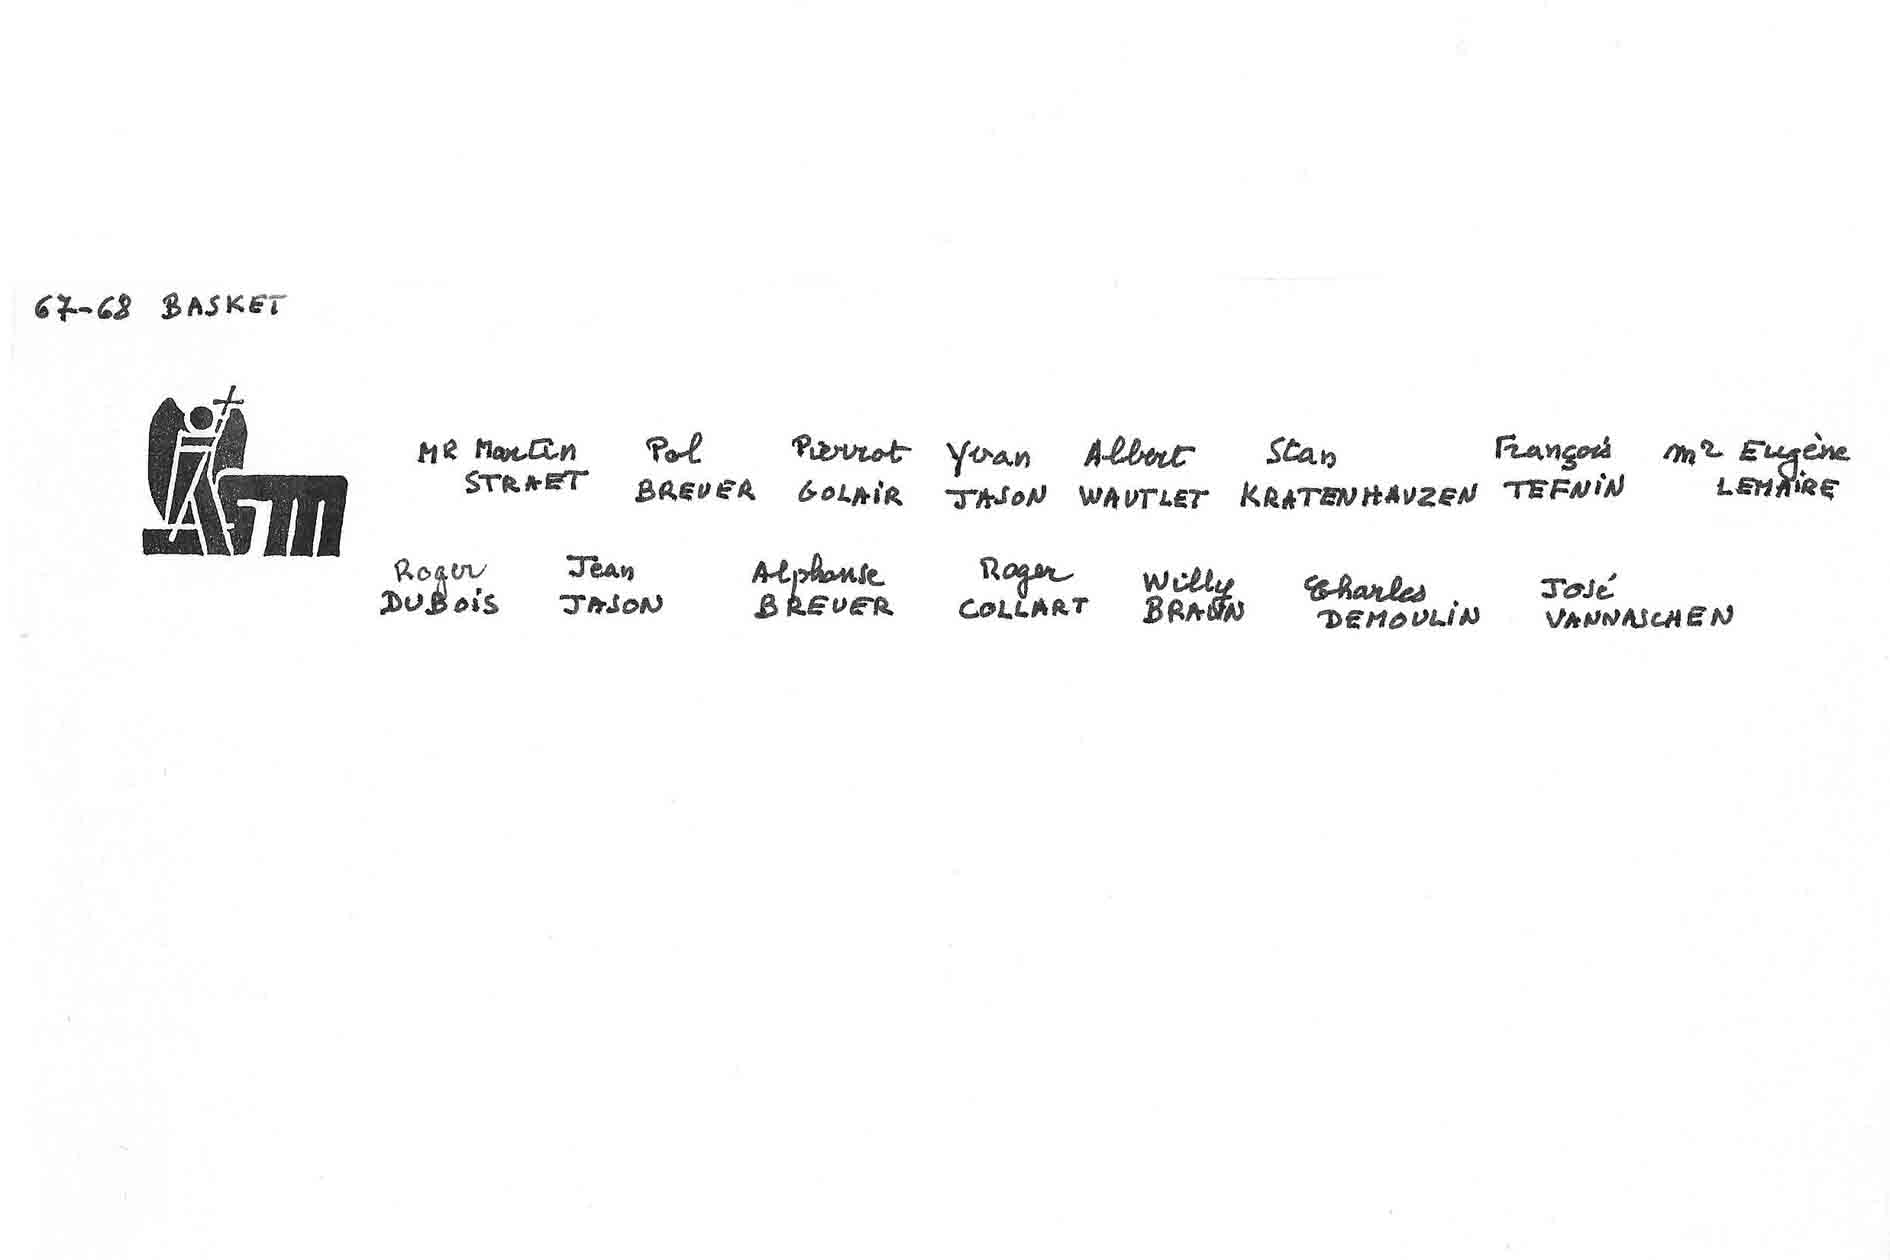 67-68 BASKET
MR Martin Pol Pierrot Yvan Albert Stan François Mr Eugène
STRAET BREUER GOLAIR JASON WAUTLET KRATENHAUZEN TEFNIN LEMAIRE
Roger Jean Alphonse Roger Willy Charles José
DUBOIS JASON BREUER COLLART BRAUN DEMOULIN VANNASCHEN